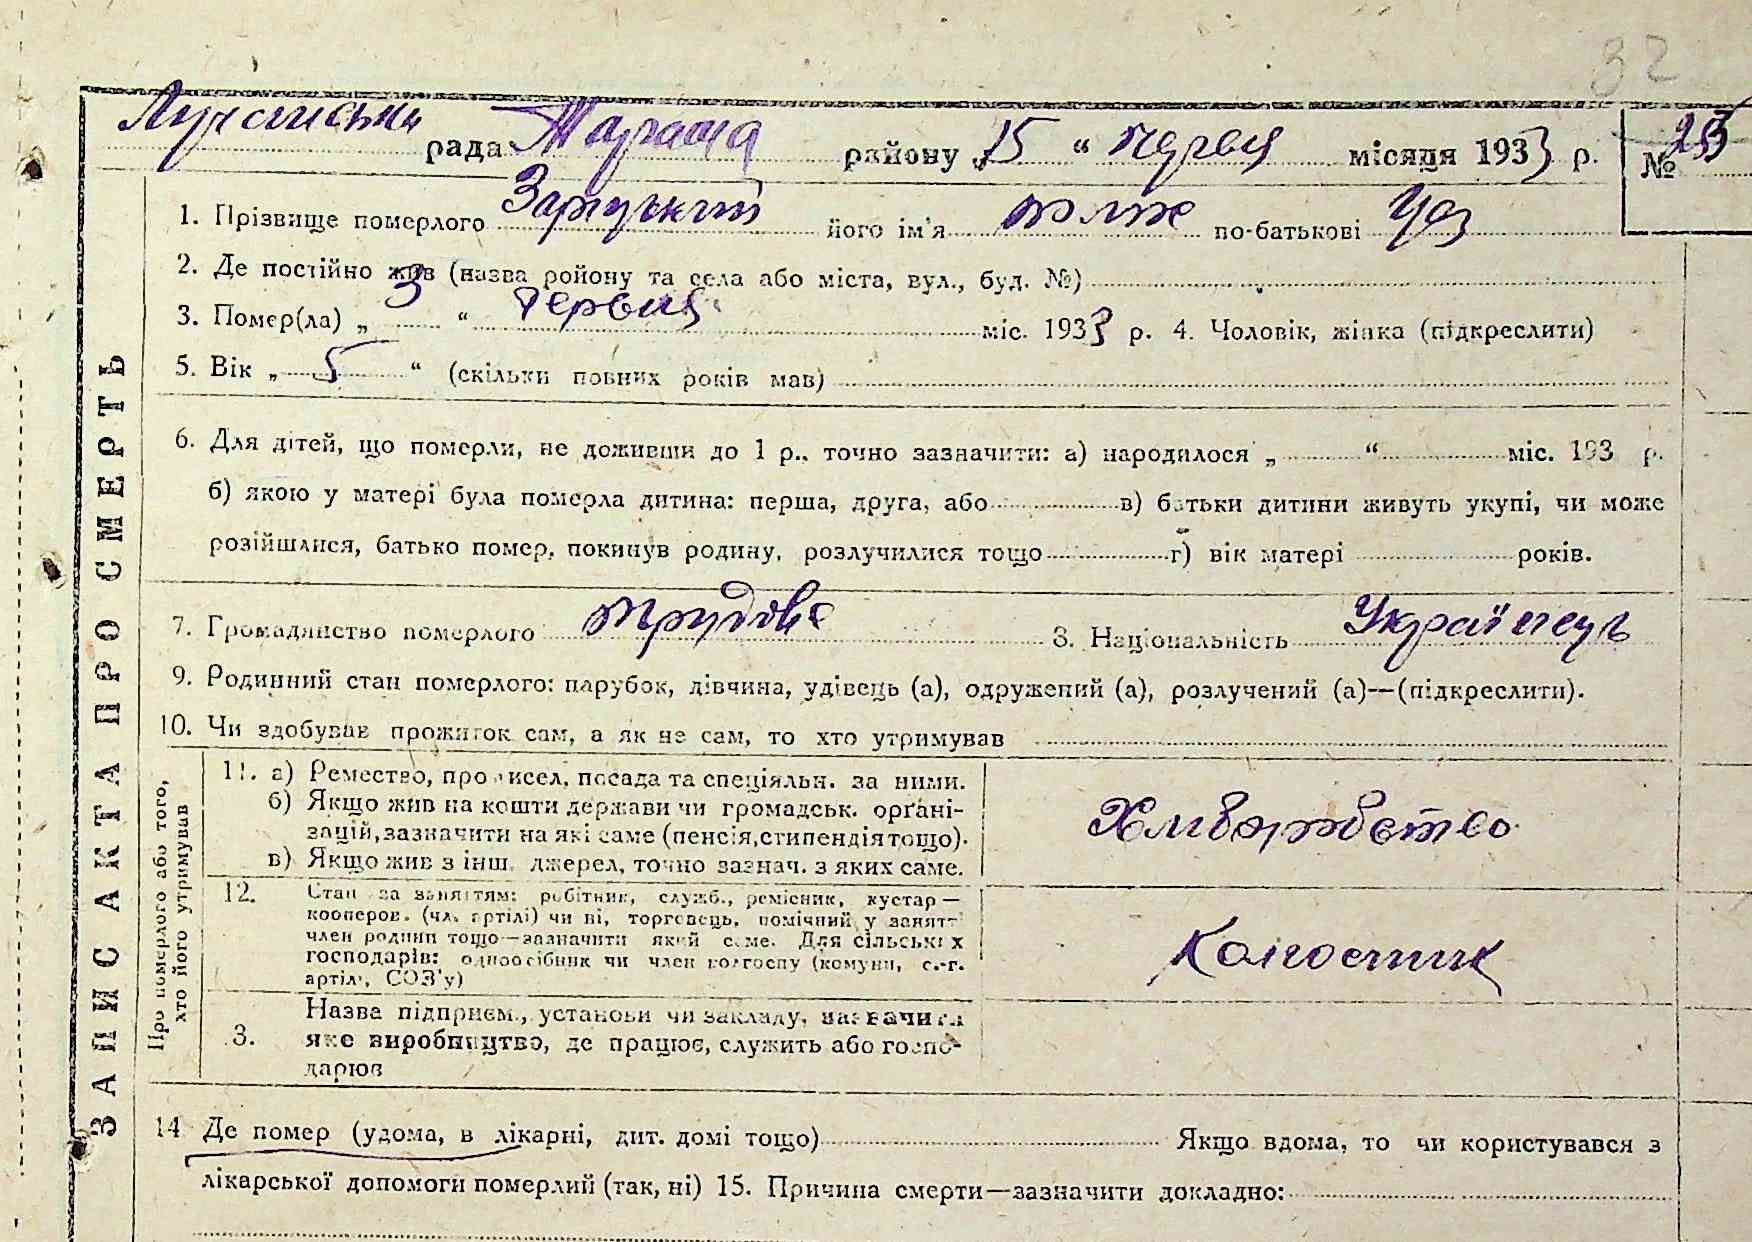 32
Лучанська рада Тараща району „15“ червня місяця 1933 р. № 253
1. Прізвище померлого Заруцький його ім'я по-батькові
2. Де постійно жив (назва ройону та села або міста, вул., буд. №)
3. Помер(ла) „3“ червня міс. 1933 р. 4. Чоловік, жінка (підкреслити)
5. Вік „5“ (скільки повних років мав)
6. Для дітей, що померли, не доживши до 1 р., точно зазначити: а) народилося „ “ міс. 193 р.
б) якою у матері була померла дитина: перша, друга, або в) батьки дитини живуть укупі, чи може
розійшлися, батько помер, покинув родину, розлучилися тощо г) вік матері років.
7. Громадянство померлого трудове 8. Національність Українець
9. Родинний стан померлого: парубок, дівчина, удівець (а), одружений (а), розлучений (а)—(підкреслити).
10. Чи здобував прожиток сам, а як не сам, то хто утримував
11. а) Ремество, промисел, посада та спеціяльн. за ними.
б) Якщо жив на кошти держави чи громадськ. орґані-
зацій, зазначити на які саме (пенсія, стипендія тощо).
в) Якщо жив з інш. джерел, точно зазнач. з яких саме.
Хліборобство
12. Стан за заняттям: робітник, служб., ремісник, кустар—
кооперов. (чл. артілі) чи ні, торговець, помічний у занятт
член родини тощо—зазначити який саме. Для сільських
господарів: одноосібник чи член колгоспу (комуни, с.-г.
артілі, СОЗ'у)
Колгоспник
3. Назва підприєм., установи чи закладу, зазначити
яке виробництво, де працює, служить або госпо-
дарює
14 Де помер (удома, в лікарні, дит. домі тощо) Якщо вдома, то чи користувався з
лікарської допомоги померлий (так, ні) 15. Причина смерти—зазначити докладно:
ЗАПИС АКТА ПРО СМЕРТЬ
Про померлого або того,
хто його утримував